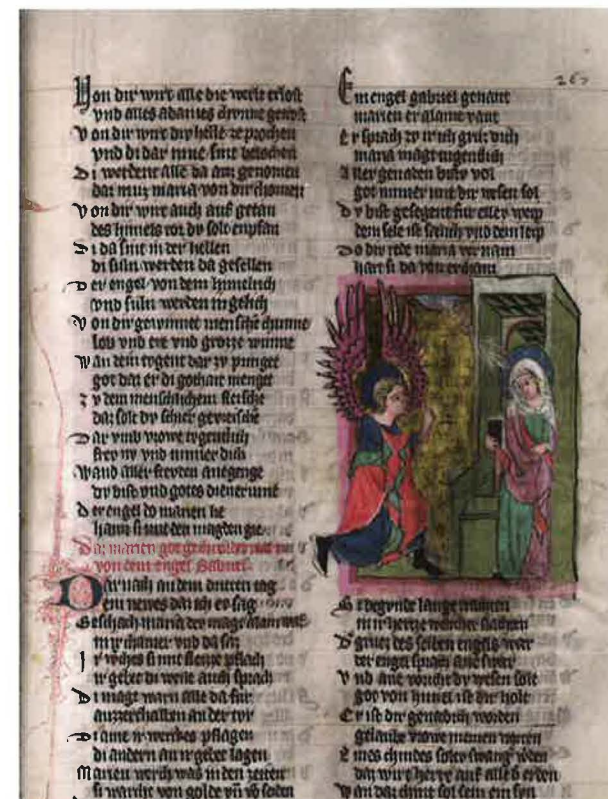 Von dir wirt alle die werlt erlost
vnd alles adames
Von dir wirt div helle ze prochen
vnd di dar inne sint
Di werdent alle da an genomen
daz muz maria von dir chomen
Von dir wirt auch auf getan
des himels tor dv solt enpfan
Di da sint in der hellen
di suln werden da gesellen
Der engel von dem himelrich
vnd suln werden in gelich
Von dir gewinnet menschē chunne
lob vnd ere vnd grozze wunne
Wan dein tvgent dar zv pringet
got daz er di gothait menget
Zv dem menschlichem fleische
daz solt dv schier
Dar vmb vrowe tvgentlich
frev nv vnd immer dich
Wand aller frevden anegenge
dv bist vnd gotes dienerinne
Der engel do marien lie
haim si mit den magden gie
Daz marien got
von dem engel Gabriel
Dar nach an dem dritten tag
ein newes daz ich ev sag
Geschach maria der magt
in ir chamer vnd da saz
Ir werches si mit fleizze pflach
ir gebet di weile auch sprach
Di magt warn alle da für
auzzerhalben an der tvr
Di ane ir werches pflagen
di andern an ir gebet lagen
Marien werch was in den zeiten
si warcht von golde vñ von seiden
Ein engel gabriel genant
marien er alaine vant
Er sprach zv ir ich grüz dich
maria magt tugentlich
Aller genaden bistv vol
got immer mit dir wesen sol
Dv bist gesegent für ellev weip
dein sele ist sælich vnd dein leip
Do di rede maria vernam
hart si da von erscham
267
Si begvnde lange trahten
in ir hertze
D gruez des selben engels war
der engel sprach ane swær
Vnd ane vorcht dv wesen solt
got von himel ist dir holt
Er ist dir genædich worden
gelaube vrowe meinen worten
Eines chindes soltv swanger werden
daz wirt herre auf aller erden
Wan daz chint sol sein ein svn